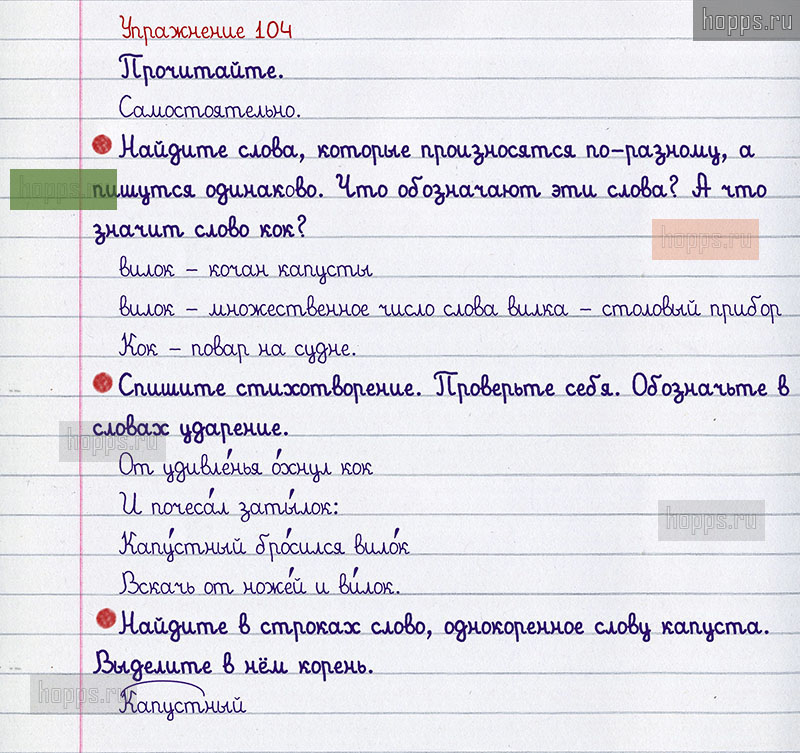 hopps.ru
Упражнение 104
Прочитайте.
Самостоятельно.
Найдите слова, которые произносятся по-разному, а
hopps.ru
пишутся одинаково. Что обозначают эти слова? А что
значит слово кок?
hopps.ru
вилок – кочан капусты
вилок – множественное число слова вилка – столовый прибор
Кок – повар на судне.
Спишите стихотворение. Проверьте себя. Обозначьте в
словах ударение.
hopps.ru
От удивле́нья о́хнул кок
И почеса́л заты́лок:
hopps.ru
Капу́стный бро́сился вило́к
Вскачь от ноже́й и ви́лок.
Найдите в строках слово, однокоренное слову капуста.
Выделите в нём корень.
hopps.ru
Капустный